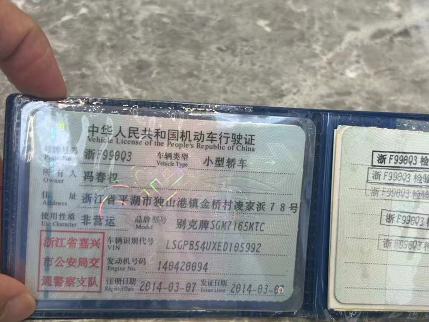 中华人民共和国机动车行驶证
Vehicle License of the People's Republic of China
号牌号码 浙F990Q3 车辆类型 小型轿车
Plate No. Vehicle Type
所有人 冯春根
Owner
住址 浙江省平湖市独山港镇金桥村凌家浜78号
Address
使用性质 非营运 品牌型号 别克牌SGM7165MTC
Use Character Model
浙江省嘉兴 车辆识别代号 LSGPB54UXED105992
VIN
市公安局交 发动机号码 140420094
Engine No.
通警察支队 注册日期 2014-03-07 发证日期 2014-03-07
Register Date Issue Date
浙F990Q3 检验
浙F990Q3 检验
浙F990Q3
浙F990Q3 检
浙F990Q3 检验